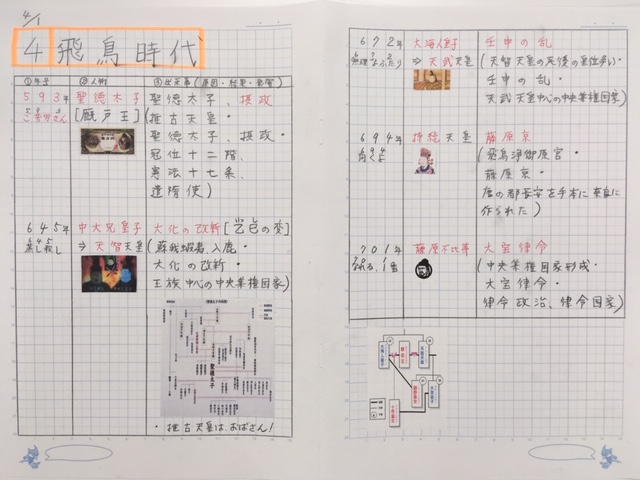 4/1
4 飛鳥時代
①年号 ②人物 ③出来事(原因・結果・影響)
593年 聖徳太子 聖徳太子、摂政
[厩戸王] (推古天皇・
聖徳太子、摂政・
冠位十二階、
憲法十七条、
遣隋使)
645年 中大兄皇子 大化の改新[乙巳の変]
蒸し殺し ⇒ 天智天皇 (蘇我蝦夷、入鹿・
大化の改新・
王族中心の中央集権国家)
聖徳太子
・推古天皇は、おばさん!
672年 大海人皇子 壬申の乱
⇒ 天武天皇 (天智天皇の死後の皇位争い・
壬申の乱・
天武天皇中心の中央集権国家)
694年 持統天皇 藤原京
(飛鳥浄御原宮・
藤原京・
唐の都長安を手本に奈良に
作られた)
701年 藤原不比等 大宝律令
(中央集権国家形成・
大宝律令・
律令政治、律令国家)